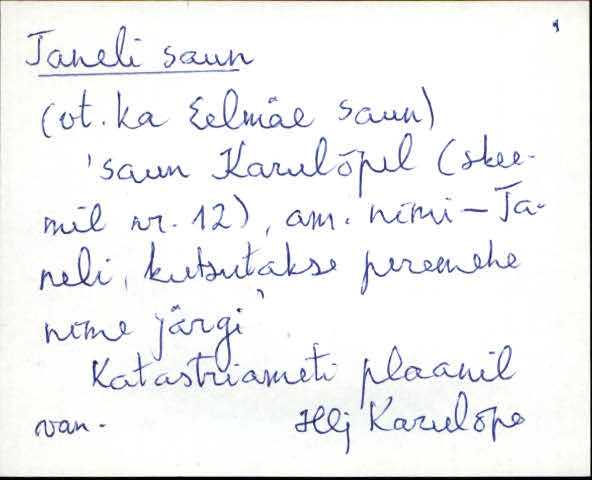 Taneli saun
(vt. ka Eelmäe saun)
'saun Karulõpel (skee-
mil nr. 12), am. nimi – Ta-
neli, kutsutakse peremehe
nime järgi'
Katastriameti plaanil
van. Hlj Karulõpe